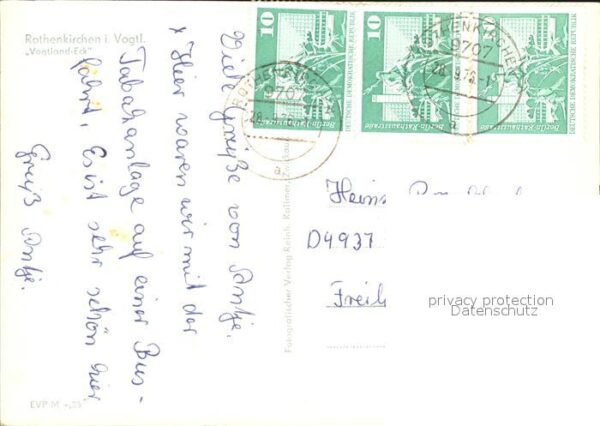 Rothenkirchen i. Vogtl.
„Vogtland-Eck“
Viele Grüße von Antje.
x Hier waren wir mit der
Tabakanlage auf einer Bus-
fahrt. Es ist sehr schön hier
Gruß Antje.
EVP M
10
DEUTSCHE DEMOKRATISCHE REPUBLIK
Berlin-Rathausstraße
10
DEUTSCHE DEMOKRATISCHE REPUBLIK
Berlin-Rathausstraße
DEUTSCHE DEMOKRATISCHE REPUBLIK
Berlin-Rathausstraße
9707
a
ROTHENKIRCHEN
9707
a
Fotografischer Verlag Reinh. Kallmer, Zwickau
Heinz
D4937
Freib
privacy protection
Datenschutz